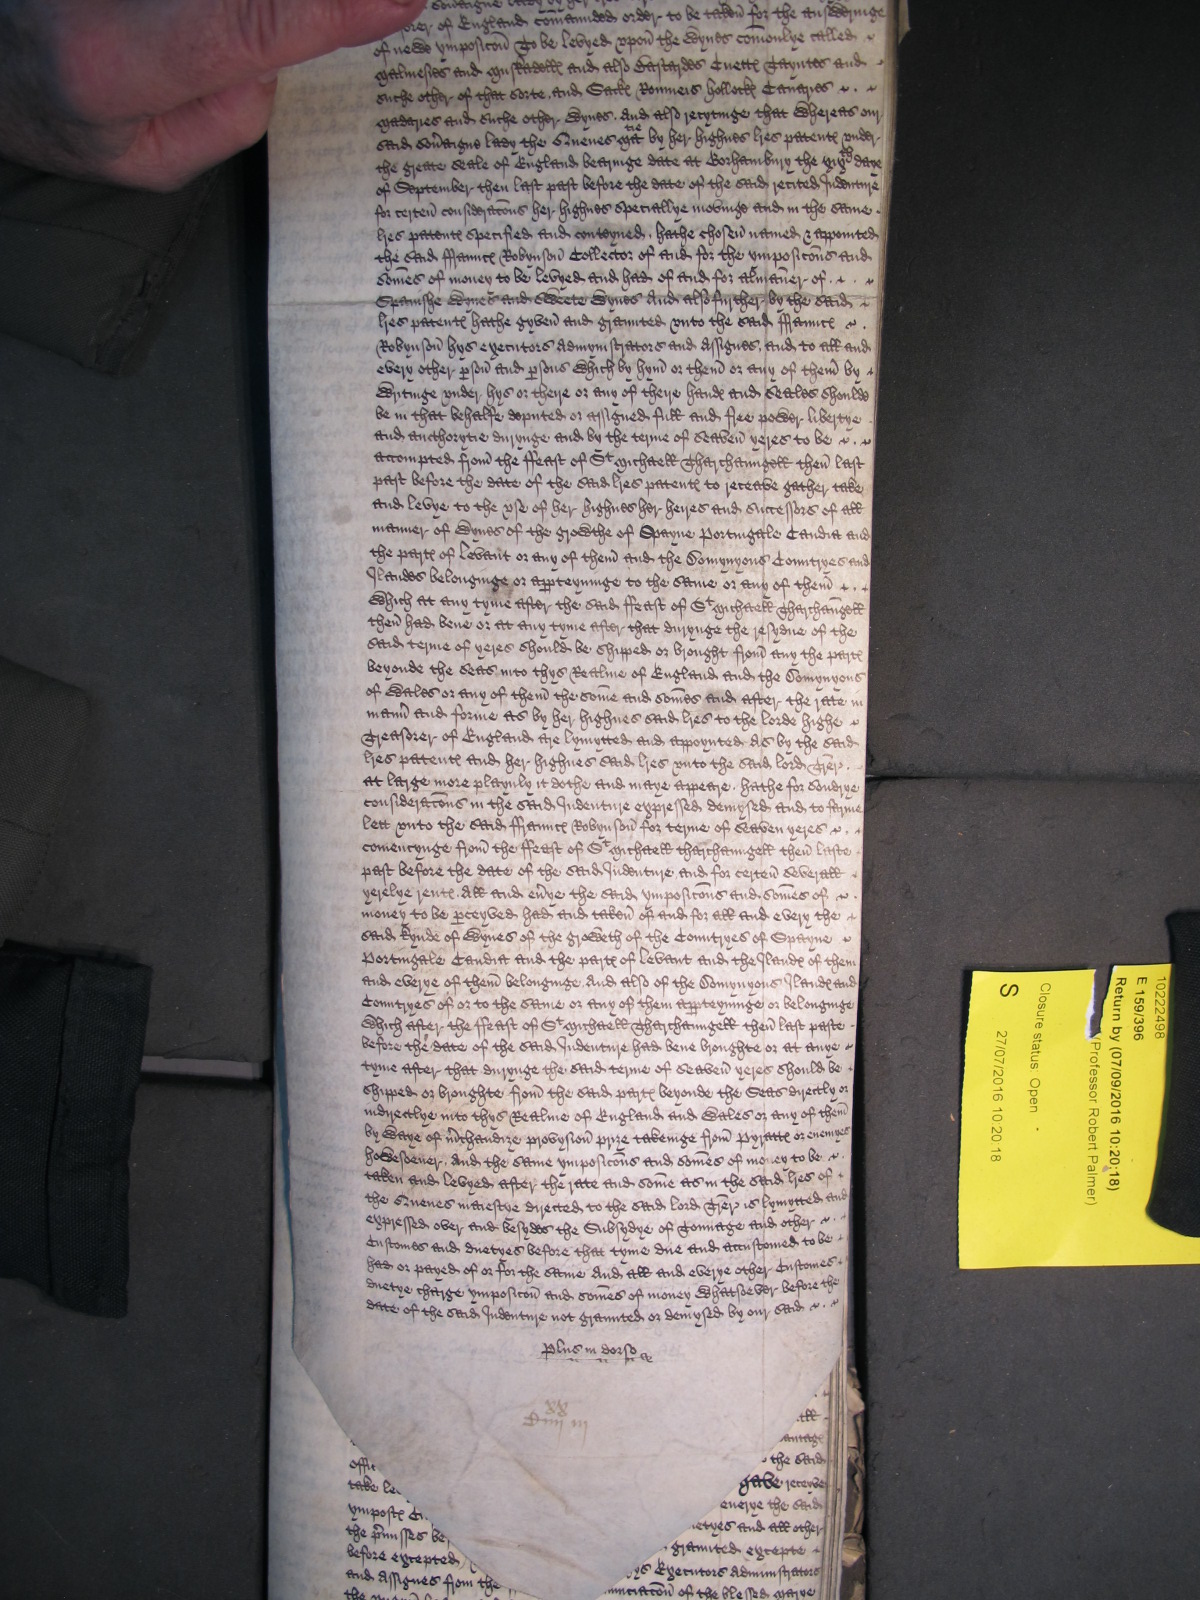 soveraigne lady by her
Tresorer of England comaunded order to be taken for the answeringe
of newe ymposicon to be levyed vpon the wynes comonlye called
Malmesies and Muskadells and also Bastardes Cuett Tayntes and
suche other of that sorte, and Sack Romneis Hollock Canaries
Madaries and suche other wynes. And also recytinge that whereas our
said sovaigne lady the Quenes matie by her highnes lres patent vnder
the greate seale of England bearinge date at Gorhambury the daye
of September then last past before the date of the said recited Indenture
for certen consideracons her highnes speciallye movinge and in the same
lres patent specified and conteyned, hathe chosen named & appointed
the said ffraunc Robynson Collector of and for the ymposicons and
somes of money to be levyed and had of and for almaner of
Spanishe wynes and sweete wynes And also further by the said
lres patent hathe gyven and graunted vnto the said ffraunc
Robynson hys executors admynistrators and assignes, and to all and
every other pson and psons which by hym or them or any of them by
wrytinge vnder hys or theire or any of theire hand and seales should
be in that behalfe deputed or assigned full and free power libertye
and aucthorytie duringe and by the terme of seaven yeres to be
accompted from the ffeast of St Michaell Tharchaungell then last
past before the date of the said lres patent to receave gather take
and levye to the vse of her highnes her heires and successors of all
manner of wynes of the growthe of Spayne Portingale Candia and
the part of Levant or any of them and the Domynyons Countryes and
Ilandes belonginge or appteyninge to the same or any of them
which at any tyme after the said ffeast of St Michaell Tharchaungell
then had bene or at any tyme after that durynge the resydue of the
said terme of yeres should be shipped or brought from any the part
beyonde the seas into thys Realme of England and the Domynyons
of Wales or any of them the some and somes and after the rate in
mann and forme as by her highnes said lres to the lorde highe
Treasorer of England are lymytted and appoynted As by the said
lres patent and her highnes said lres vnto the said lord Trer
at large more playnly it dothe and maye appeare. hathe for sondrye
consideracons in the said Indenture expressed demysed and to farme
lett vnto the said ffraunc Robynson for terme of seaven yeres
comencynge from the ffeast of St Michaell tharchaungell then laste
past before the date of the said Indenture and for certen severall
yerelye rent. All and evye the said ymposicons and somes of
money to be pceyved had and taken of and for all and every the
said kynde of wynes of the groweth of the Countryes of Spayne
Portingale Candia and the part of Levant and the Iland of them
and everye of them belonginge. And also of the Domynyons Iland and
Countryes of or to the same or any of them appteyninge or belonginge
which after the ffeast of St Michaell Tharchaungell then last paste
before the date of the said Indenture had bene broughte or at anye
tyme after that durynge the said terme of seaven yeres should be
shipped or broughte from the said part beyonde the Seas directly or
indirectlye into thys Realme of England and Wales or any of them
by waye of mchandize provysion prize takeinge from Pyratt or enemyes
howesoever. And the same ymposicons and somes of money to be
taken and levyed after the rate and some as in the said lres of
the Quenes maiestye directed to the said lord Trer is lymytted and
expressed over and besydes the Subsydye of Tonnage and other
Customes and duetyes before that tyme due and accustomed to be
had or payed of or for the same And all and everye other Customes
duetye charge ymposicon and somes of money whatsoever before the
date of the said Indenture not graunted or demysed by our said
Plus in dorso
offic the said
take gave receive
ymposic everye the said
the pmisses be and all other
before excepted graunted excepte
and Assignes from the Executors administrators
of the blessed
10222498
E 159/396
Return by (07/09/2016 10:20:18)
(Professor Robert Palmer)
Closure status: Open
27/07/2016 10:20:18
S